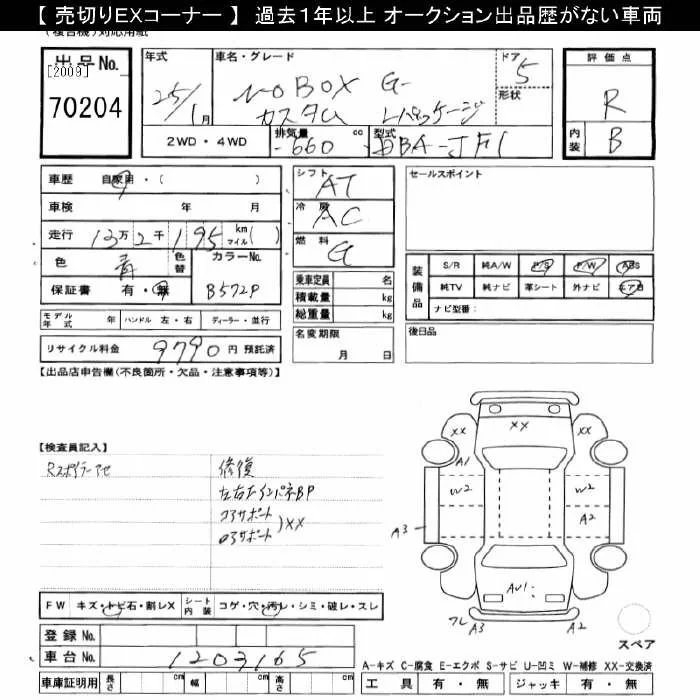 【 売切りEXコーナー 】 過去1年以上 オークション出品歴がない車両
(複合機)対応用紙
出品No. 年式 車名・グレード ドア 評価点
[2009]
70204 25/1月 NOBOX G カスタム Lパッケージ 5 形状 R
2WD・4WD 排気量 660 cc 型式 DBA-JF1 内装 B
車歴 自家用・( ) シフト AT セールスポイント
車検 年 月 冷房 AC
走行 13万2千195 kmマイル( ) 燃料 G
色 青 色替 カラーNo.
保証書 有・無 B572P
装備品 S/R 純A/W P/S P/W ABS
純TV 純ナビ 革シート 外ナビ エアB
ナビ型番:
乗車定員 名
積載量 kg
総重量 kg
モデル年式 年 ハンドル 左・右 ディーラー・並行
名変期限 月 日
後日品
リサイクル料金 9790 円 預託済
【出品店申告欄(不良箇所・欠品・注意事項等)】
【検査員記入】
Rスポイラーアセ
修復
左右Fインパネ BP
コアサポート
ロアサポート )XX
XX XX XX
A1
W2 W2
A3 A2
AU1
フレ A3 A2
スペア
FW キズ・トビ石・割レX シート内装 コゲ・穴・汚レ・シミ・破レ・スレ
登録No.
車台No. 1203165
A-キズ C-腐食 E-エクボ S-サビ U-凹ミ W-補修 XX-交換済
車庫証明用 長さ cm 幅 cm 高さ cm 工具 有・無 ジャッキ 有・無